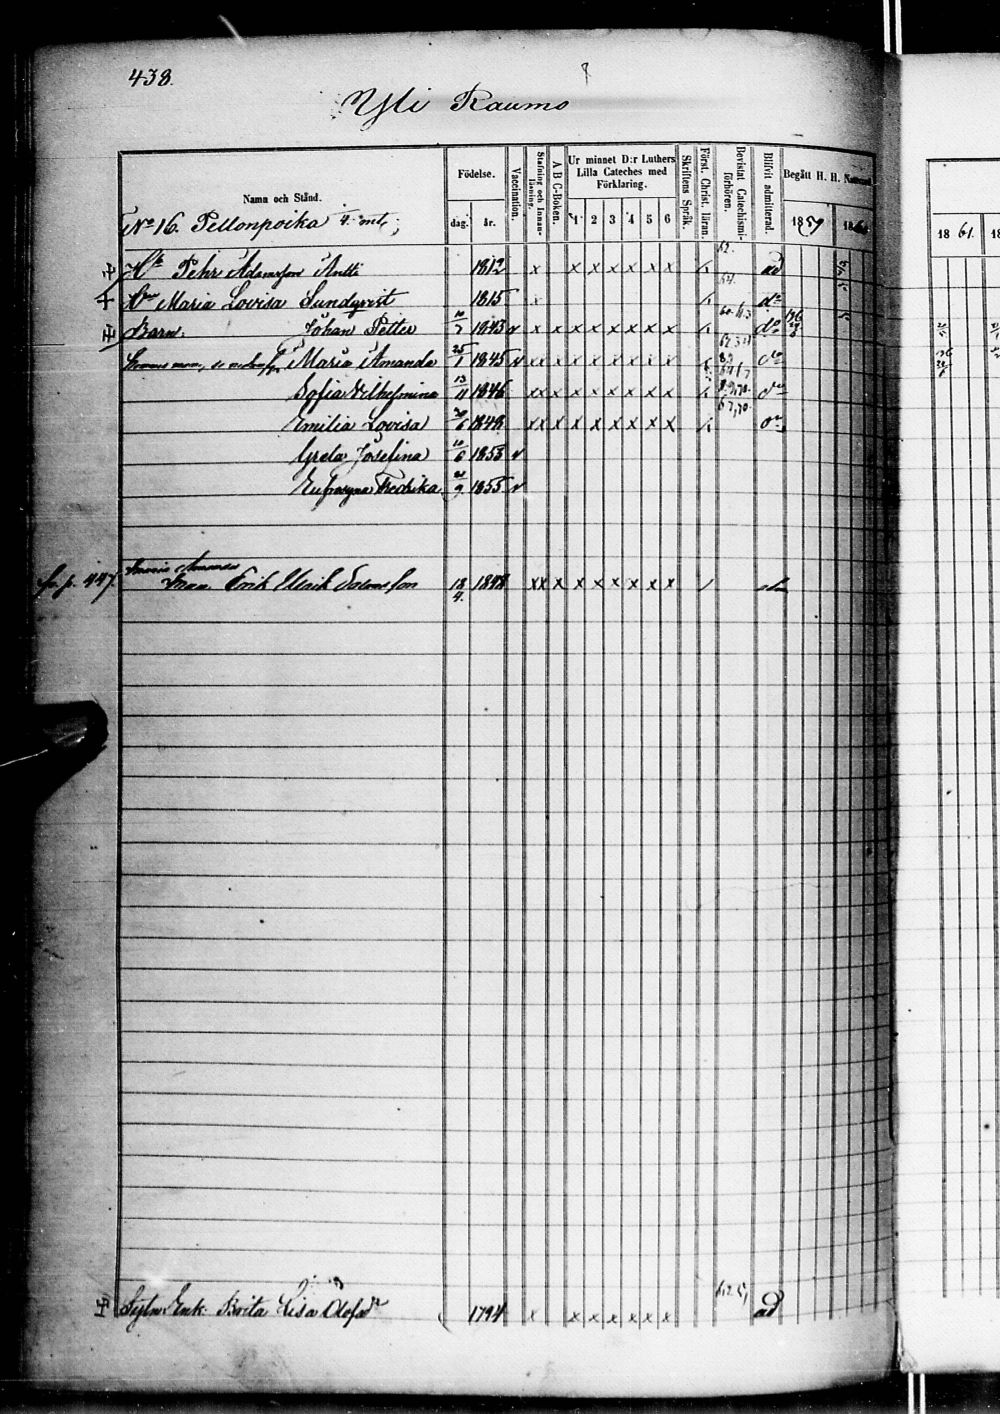 438.
Yli Raumo
Namn och Stånd.
Födelse.
dag.
år.
Vaccination.
Stafning och Innanläsning.
A B C-Boken.
Ur minnet D:r Luthers Lilla Cateches med Förklaring.
1 2 3 4 5 6
Skriftens Språk.
Först. Christ. läran.
Bevistat Catechismiförhören.
Blifvit admitterad.
Begått H. H. Nattvard
1859
186
18 61.
18
No 16. Pellonpoika 4. mtl;
Pehr Adamsson Antti 1812 x x x x x x x ad
Maria Lovisa Sundqvist 1815 x do
Barn: Johan Petter 10/7 1843 v x x x x x x x x do
Maria Amanda 25/1 1845 v x x x x x x x x x do
Sofia Vilhelmina 13/11 1846 x x x x x x x x x do
Emilia Lovisa 1848 x x x x x x x x x do
Greta Josefina 10/6 1853 v
Fredrika 1855 v
fr. p. 447. Erik Ulrik 18/4 1848 x x x x x x x x x
Enk. Brita Lisa Olofsdr 1794 x x x x x x x ad